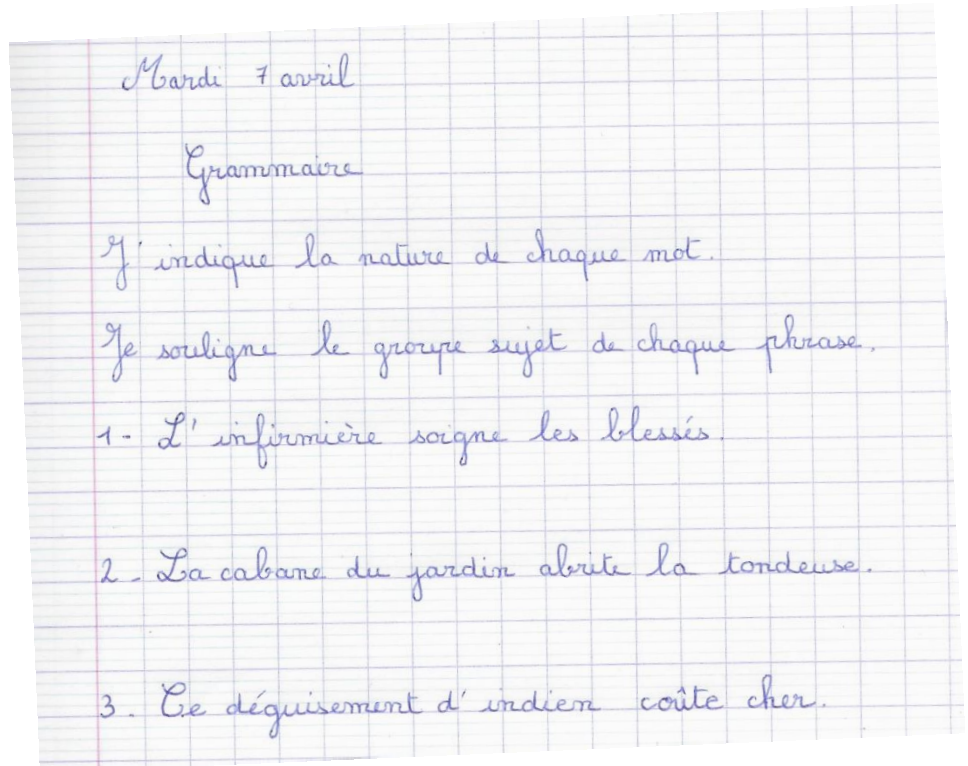 Mardi 7 avril
Grammaire
J'indique la nature de chaque mot.
Je souligne le groupe sujet de chaque phrase.
1- L'infirmière soigne les blessés.
2- La cabane du jardin abrite la tondeuse.
3. Ce déguisement d'indien coûte cher.